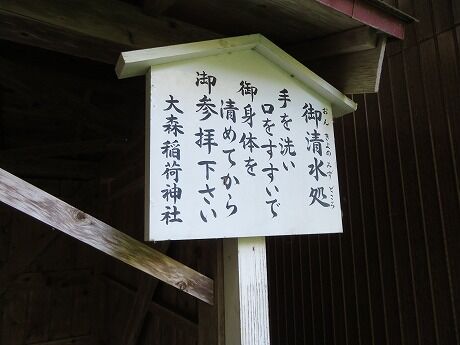 御清水処
おん きよの みず どころ
手を洗い
口をすすいで
御身体を
清めてから
御参拝下さい
大森稲荷神社